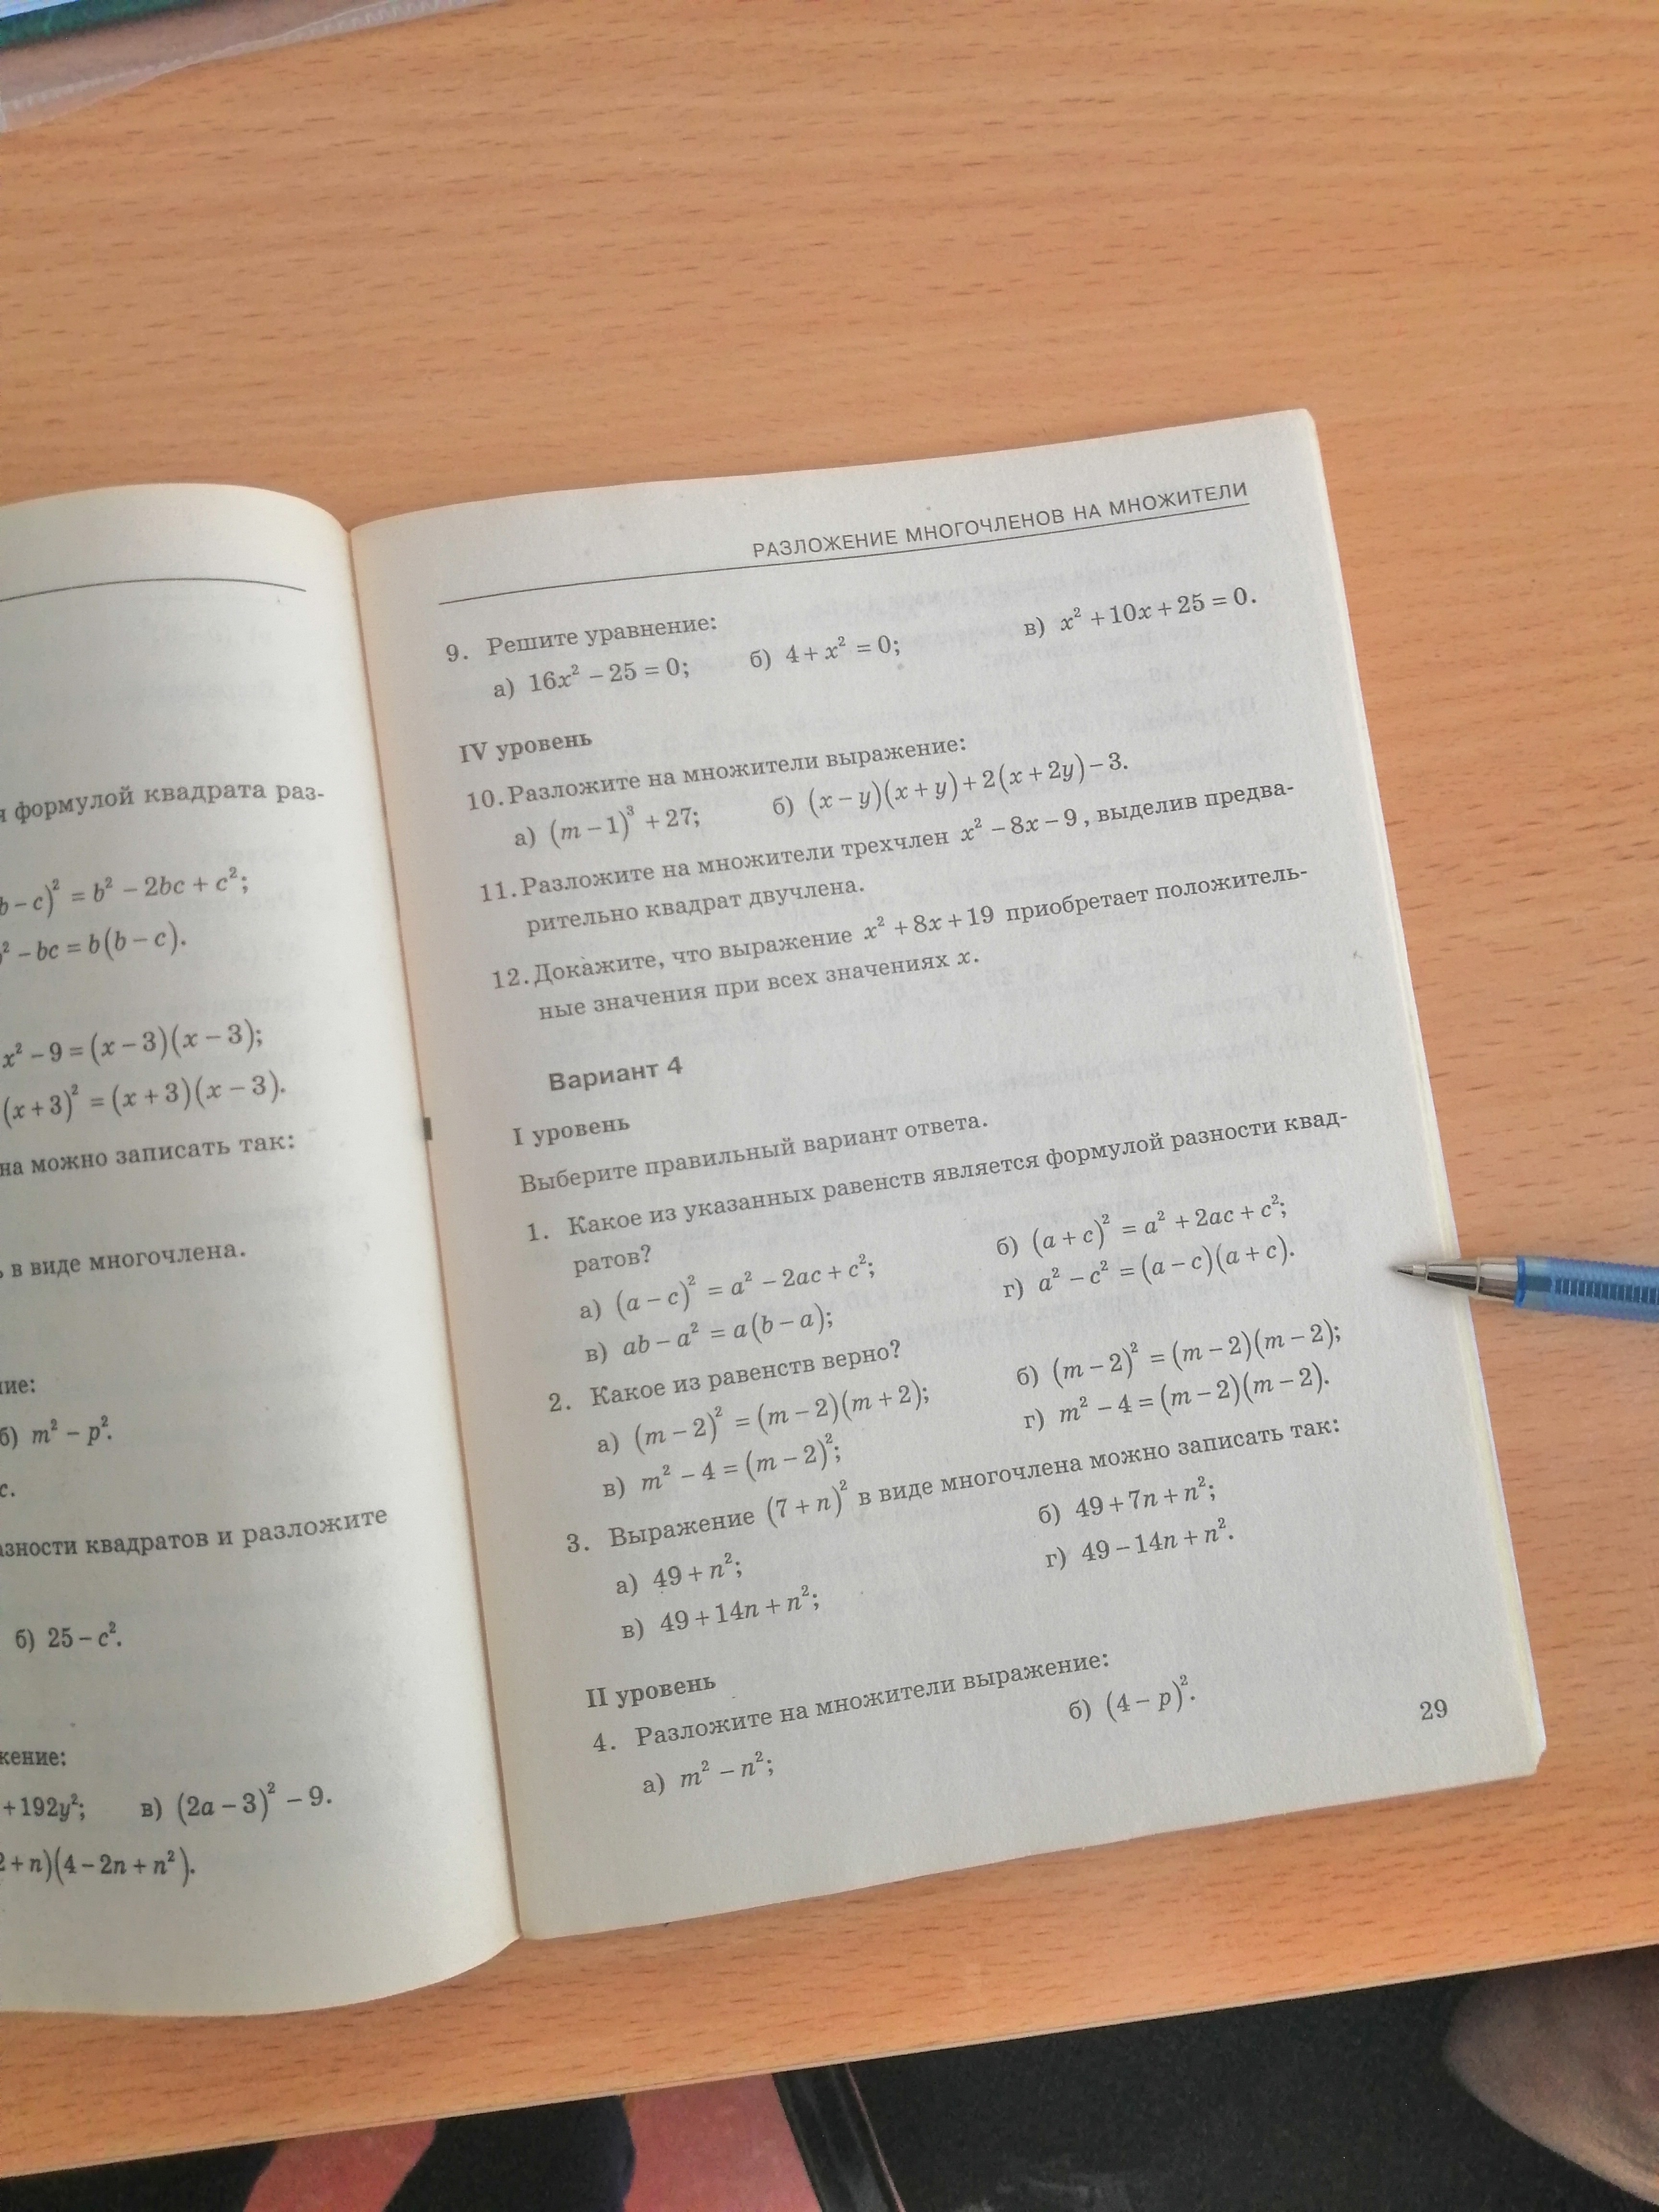 я формулой квадрата раз-
b – c)² = b² – 2bc + c²;
² – bc = b(b – c).
x² – 9 = (x – 3)(x – 3);
(x + 3)² = (x + 3)(x – 3).
на можно записать так:
ь в виде многочлена.
ние:
б) m² – p².
с.
азности квадратов и разложите
б) 25 – c².
жение:
+ 192y²; в) (2a – 3)² – 9.
2 + n)(4 – 2n + n²).
РАЗЛОЖЕНИЕ МНОГОЧЛЕНОВ НА МНОЖИТЕЛИ
9. Решите уравнение:
а) 16x² – 25 = 0; б) 4 + x² = 0; в) x² + 10x + 25 = 0.
IV уровень
10. Разложите на множители выражение:
а) (m – 1)³ + 27; б) (x – y)(x + y) + 2(x + 2y) – 3.
11. Разложите на множители трехчлен x² – 8x – 9, выделив предва-
рительно квадрат двучлена.
12. Докажите, что выражение x² + 8x + 19 приобретает положитель-
ные значения при всех значениях x.
Вариант 4
I уровень
Выберите правильный вариант ответа.
1. Какое из указанных равенств является формулой разности квад-
ратов?
а) (a – c)² = a² – 2ac + c²; б) (a + c)² = a² + 2ac + c²;
в) ab – a² = a(b – a); г) a² – c² = (a – c)(a + c).
2. Какое из равенств верно?
а) (m – 2)² = (m – 2)(m + 2); б) (m – 2)² = (m – 2)(m – 2);
в) m² – 4 = (m – 2)²; г) m² – 4 = (m – 2)(m – 2).
3. Выражение (7 + n)² в виде многочлена можно записать так:
а) 49 + n²; б) 49 + 7n + n²;
в) 49 + 14n + n²; г) 49 – 14n + n².
II уровень
4. Разложите на множители выражение:
а) m² – n²; б) (4 – p)².
29